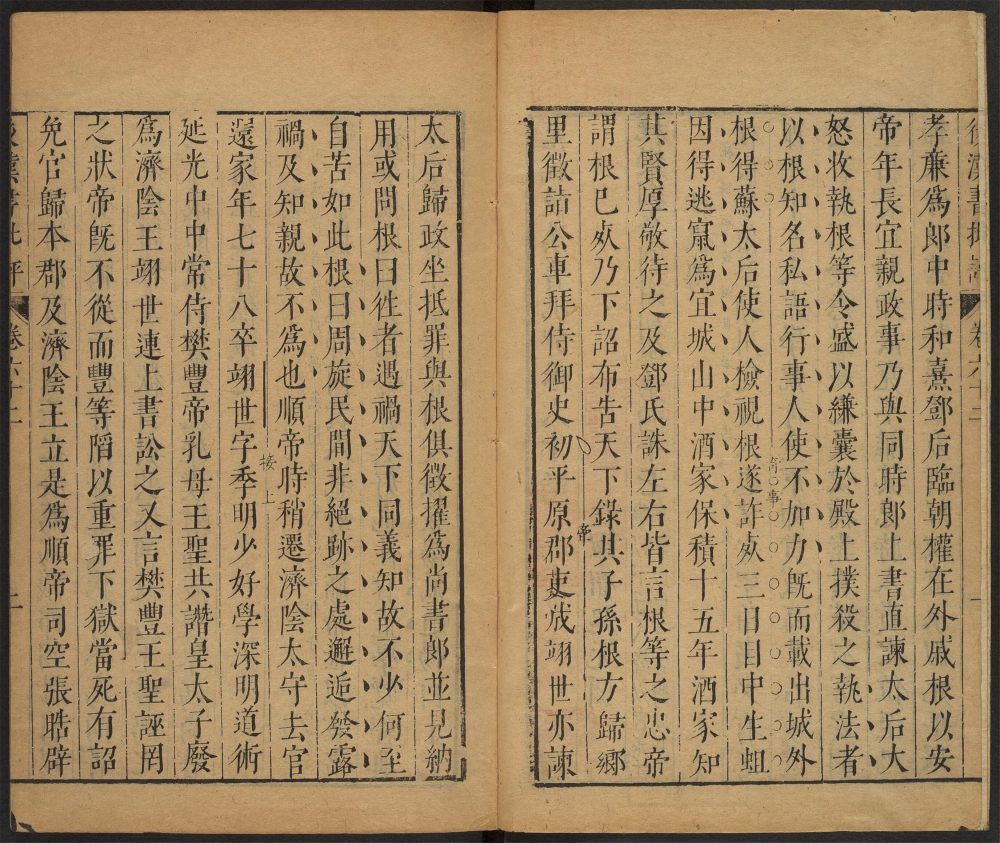 孝廉爲郎中時和熹鄧后臨朝權在外戚根以安
帝年長宜親政事乃與同時郎上書直諫太后大
怒收執根等令盛以縑囊於殿上撲殺之執法者
以根知名私語行事人使不加力旣而載出城外
奇事
根得蘇太后使人檢視根遂詐死三日目中生蛆
因得逃竄爲宜城山中酒家保積十五年酒家知
其賢厚敬待之及鄧氏誅左右皆言根等之忠帝
帝
謂根已死乃下詔布告天下錄其子孫根方歸鄉
里徵詣公車拜侍御史初平原郡吏成翊世亦諫
太后歸政坐抵罪與根俱徵擢爲尚書郎並見納
用或問根曰往者遇禍天下同義知故不少何至
自苦如此根曰周旋民間非絕跡之處邂逅發露
禍及知親故不爲也順帝時稍遷濟陰太守去官
還家年七十八卒翊世字季明少好學深明道術
接上
延光中中常侍樊豐帝乳母王聖共譖皇太子廢
爲濟陰王翊世連上書訟之又言樊豐王聖誣罔
之狀帝旣不從而豐等陷以重罪下獄當死有詔
免官歸本郡及濟陰王立是爲順帝司空張晧辟
卷六十二